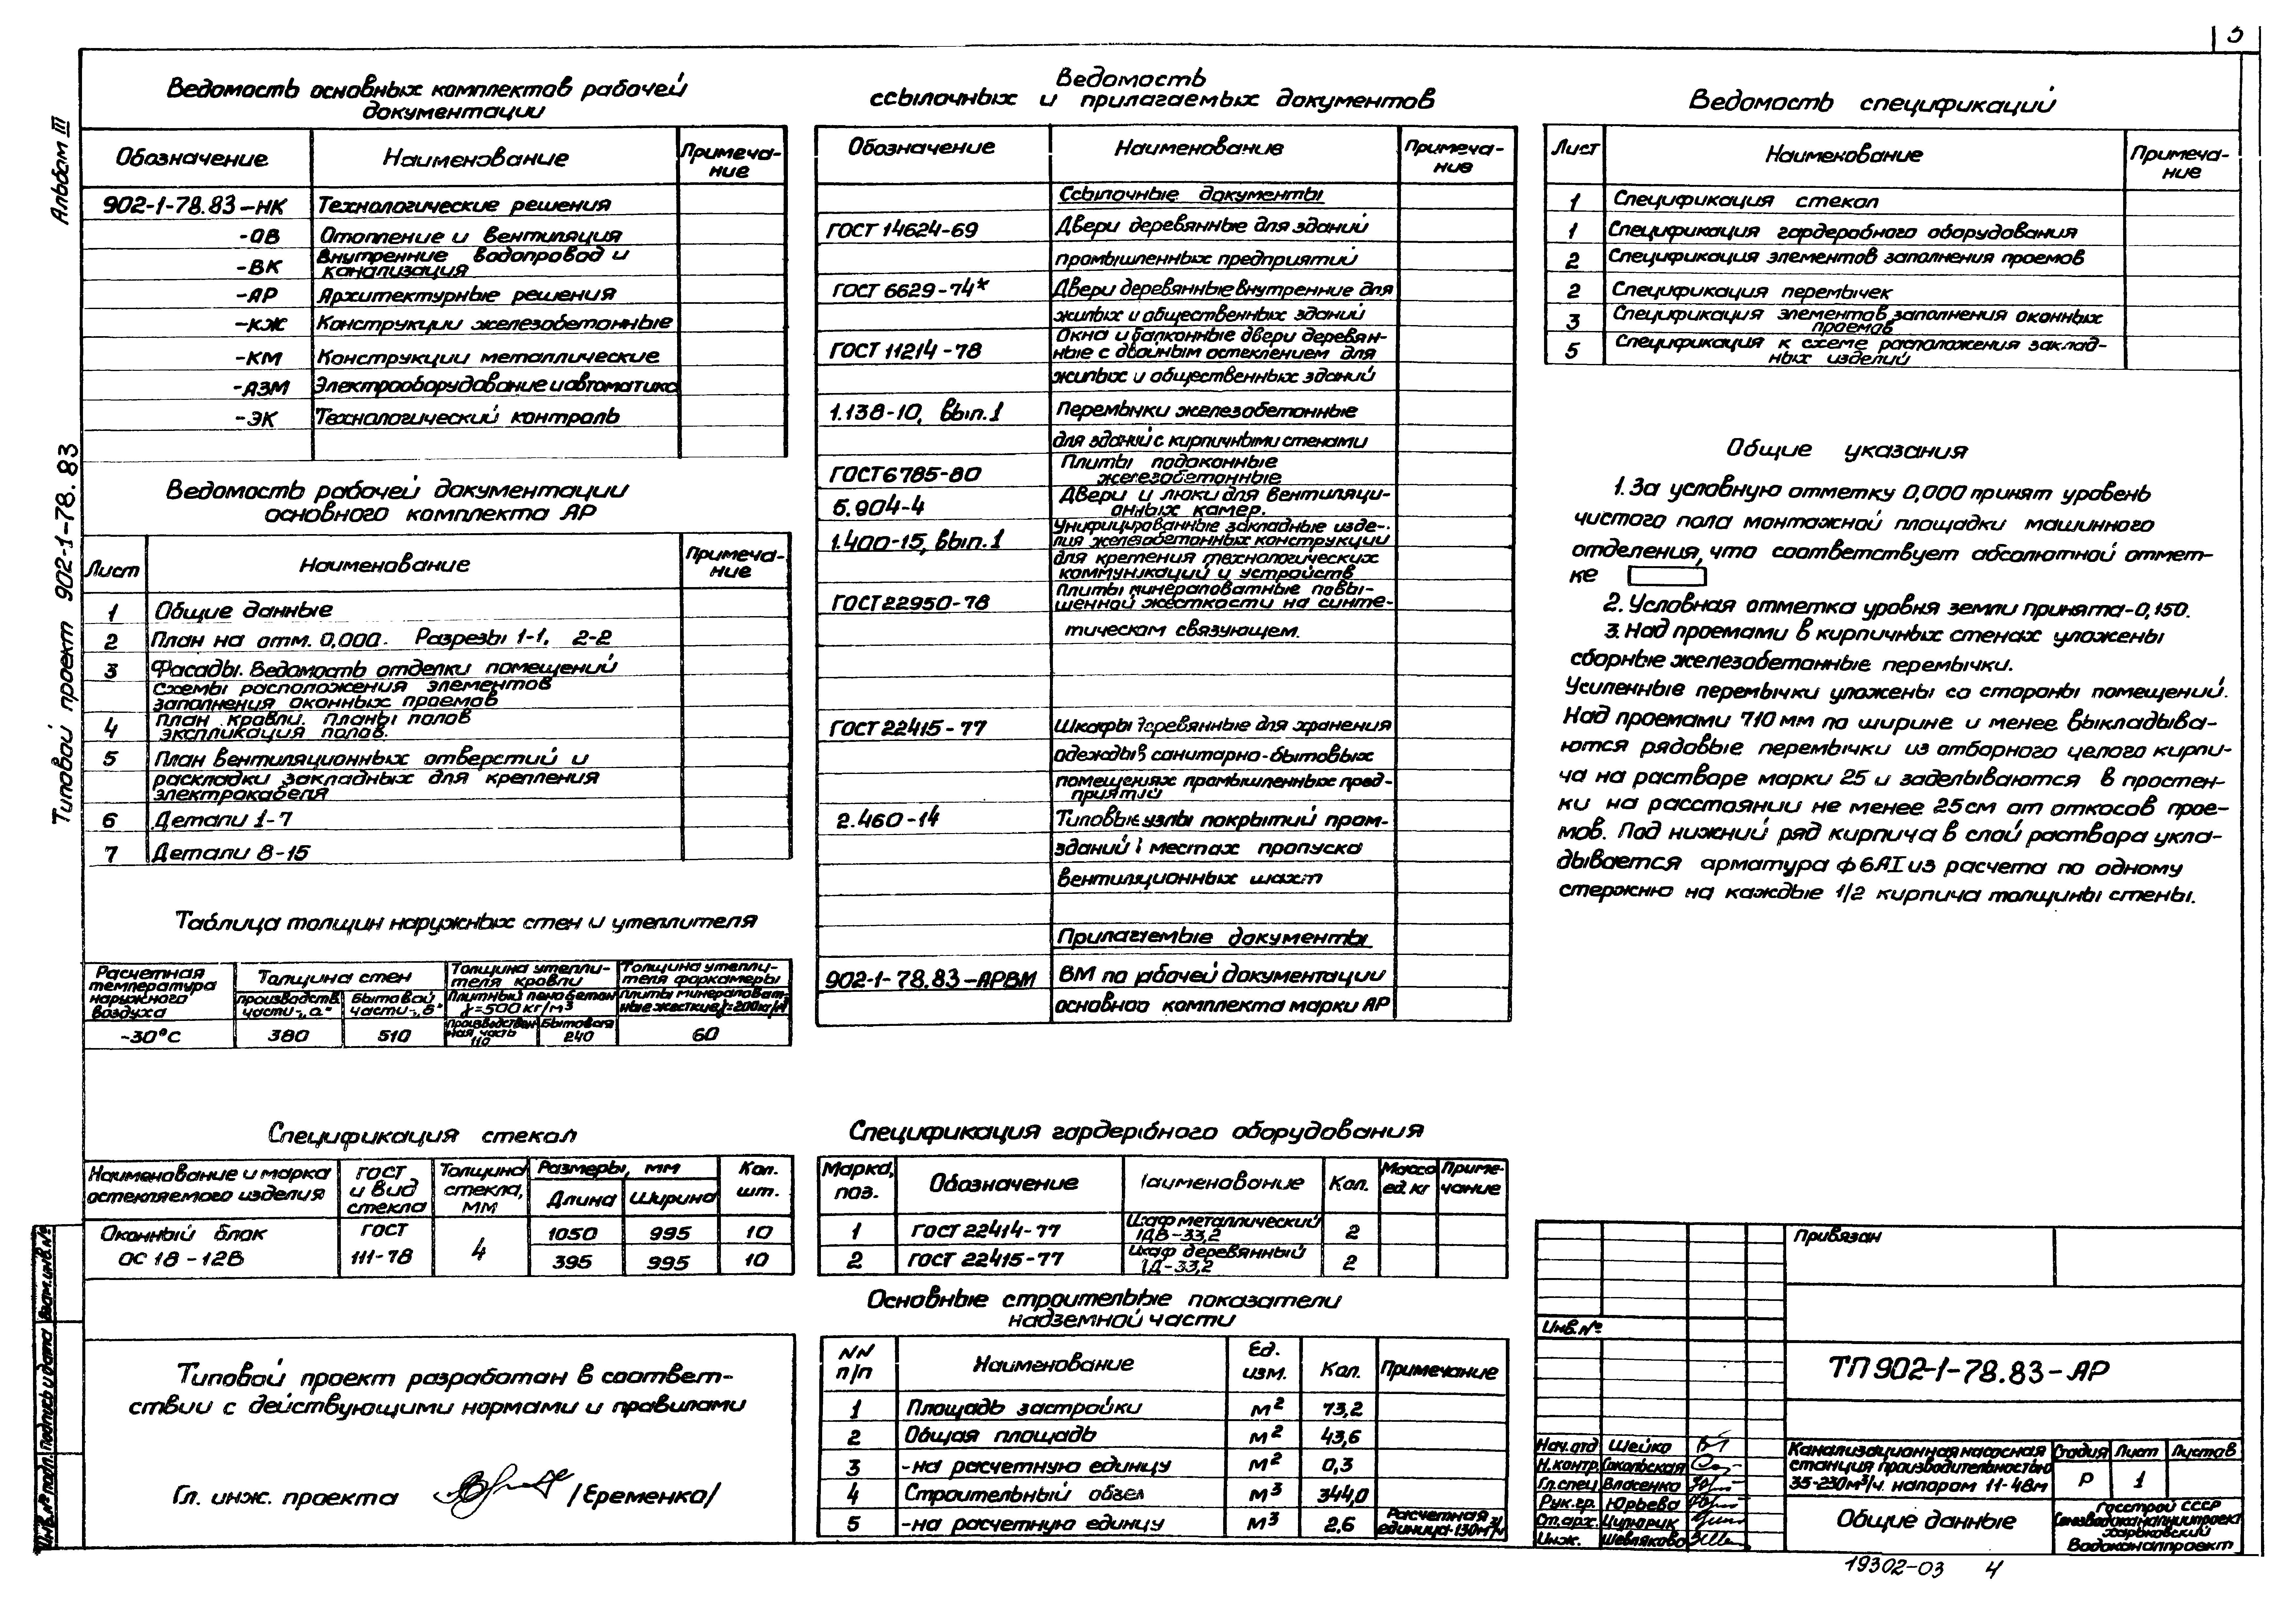 3
Альбом III
Типовой проект 902-1-78.83
Ведомость основных комплектов рабочей
документации
Обозначение Наименование Примеча-
ние
902-1-78.83-НК Технологические решения
-ОВ Отопление и вентиляция
-ВК Внутренние водопровод и
канализация
-АР Архитектурные решения
-КЖ Конструкции железобетонные
-КМ Конструкции металлические
-АЗМ Электрооборудование и автоматика
-ЭК Технологический контроль
Ведомость рабочей документации
основного комплекта АР
Лист Наименование Примеча-
ние
1 Общие данные
2 План на отм. 0,000. Разрезы 1-1, 2-2
3 Фасады. Ведомость отделки помещений
Схемы расположения элементов
заполнения оконных проемов
4 План кровли. Планы полов
экспликация полов.
5 План вентиляционных отверстий и
раскладки закладных для крепления
электрокабеля
6 Детали 1-7
7 Детали 8-15
Таблица толщин наружных стен и утеплителя
Расчетная
температура
наружного
воздуха
Толщина стен
производств.
части-„а"
Бытовой
части-„б"
Толщина утепли-
теля кровли
Плитный пенобетон
γ=500кг/м³
Толщина утепли-
теля форкамеры
Плиты минераловат-
ные жесткие γ=200кг/м³
-30°С 380 510
Производствен
ная часть
110
Бытовая
240
60
Спецификация стекол
Наименование и марка
остекляемого изделия
ГОСТ
и вид
стекла
Толщина
стекла,
мм
Размеры, мм
Длина Ширина
Кол.
шт.
Оконный блок
ОС 18-12В
ГОСТ
111-78
4
1050 995 10
395 995 10
Типовой проект разработан в соответ-
ствии с действующими нормами и правилами
Гл. инж. проекта /Еременко/
Ведомость
ссылочных и прилагаемых документов
Обозначение Наименование Примеча-
ние
Ссылочные документы
ГОСТ 14624-69 Двери деревянные для зданий
промышленных предприятий
ГОСТ 6629-74* Двери деревянные внутренние для
жилых и общественных зданий
ГОСТ 11214-78 Окна и балконные двери деревян-
ные с двойным остеклением для
жилых и общественных зданий
1.138-10, вып.1 Перемычки железобетонные
для зданий с кирпичными стенами
ГОСТ 6785-80 Плиты подоконные
железобетонные
5.904-4 Двери и люки для вентиляци-
онных камер.
1.400-15, вып.1 Унифицированные закладные изде-
лия железобетонных конструкции
для крепения технологических
коммуникаций и устройств
ГОСТ 22950-78 Плиты минераловатные повы-
шенной жесткости на синте-
тическом связующем.
ГОСТ 22415-77 Шкафы деревянные для хранения
одежды в санитарно-бытовых
помещениях промышленных пред-
приятий
2.460-14 Типовые узлы покрытий пром-
зданий в местах пропуска
вентиляционных шахт
Прилагаемые документы
902-1-78.83-АРВМ ВМ по рабочей документации
основного комплекта марки АР
Спецификация гардеробного оборудования
Марка,
поз.
Обозначение Наименование Кол.
Масса
ед. кг
Приме-
чание
1 ГОСТ 22414-77 Шкаф металлический
1ДВ-33,2
2
2 ГОСТ 22415-77 Шкаф деревянный
1Д-33,2
2
Основные строительные показатели
надземной части
NN
п/п
Наименование
Ед.
изм.
Кол. Примечание
1 Площадь застройки м² 73,2
2 Общая площадь м² 43,6
3 -на расчетную единцу м² 0,3
4 Строительный объем м³ 344,0
5 -на расчетную единцу м³ 2,6
Расчетная
единица-130м³/ч
Ведомость спецификаций
Лист Наименование Примеча-
ние
1 Спецификация стекол
1 Спецификация гардеробного оборудования
2 Спецификация элементов заполнения проемов
2 Спецификация перемычек
3 Спецификация элементов заполнения оконных
проемов
5 Спецификация к схеме расположения заклад-
ных изделий
Общие указания
1. За условную отметку 0,000 принят уровень
чистого пола монтажной площадки машинного
отделения, что соответствует абсолютной отмет-
ке
2. Условная отметка уровня земли принята-0,150.
3. Над проемами в кирпичных стенах уложены
сборные железобетонные перемычки.
Усиленные перемычки уложены со стороны помещений.
Над проемами 710 мм по ширине и менее выкладыва-
ются рядовые перемычки из отборного целого кирпи-
ча на растворе марки 25 и заделываются в простен-
ки на расстоянии не менее 25 см от откосов прое-
мов. Под нижний ряд кирпича в слой раствора укла-
дывается арматура ф6АI из расчета по одному
стержню на каждые 1/2 кирпича толщины стены.
Привязан
Инв.№
ТП 902-1-78.83-АР
Нач.отд Шейко
Н.контр. Сокольская
Гл.спец Власенко
Рук.гр. Юрьева
Ст.арх. Ципюрик
Инж. Шевляково
Канализационная насосная
станция производительностью
35-230м³/ч. напором 11-48м
Стадия Лист Листов
Р 1
Общие данные
Госстрой СССР
Союзводоканалниипроект
Харьковский
Водоканалпроект
Инв.№ подл. Подпись и дата Взам.инв.№
19302-03 4